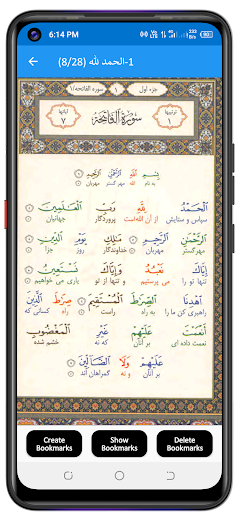 6:14 PM
1-الحمد لله (8/28)
جزء اول ١ سوره الفاتحة/١
ترتیبها ١ سُورَةُ الفَاتِحَة آیاتها ٧
بِسْمِ اللهِ الرَّحْمٰنِ الرَّحِيمِ
به نام الله مهرگستر مهربان
اَلْحَمْدُ لِلّٰهِ رَبِّ الْعَالَمِينَ
سپاس و ستایش از آن الله‌است پروردگار جهانیان
الرَّحْمٰنِ الرَّحِيمِ مَالِكِ يَوْمِ الدِّينِ
مهرگستر مهربان خداوندگار روز جزا
إِيَّاكَ نَعْبُدُ وَإِيَّاكَ نَسْتَعِينُ
تنها تو را می پرستیم و تنها از تو یاری می خواهیم
اهْدِنَا الصِّرَاطَ الْمُسْتَقِيمَ صِرَاطَ الَّذِينَ
راهبری کن ما را به راه راست راه کسانی که
أَنْعَمْتَ عَلَيْهِمْ غَيْرِ الْمَغْضُوبِ
نعمت داده ای بر آنان نه خشم شده
عَلَيْهِمْ وَلَا الضَّالِّينَ
بر آنان و نه گمراهان
Create Bookmarks
Show Bookmarks
Delete Bookmarks